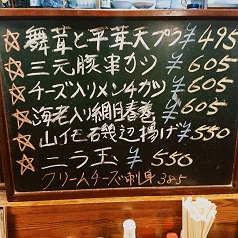 ☆舞茸と平茸天プラ ¥495
☆三元豚串カツ ¥605
☆チーズ入リメンチカツ ¥605
☆海老入り網目春巻 ¥605
☆山イモ石磯辺揚げ ¥550
☆ニラ玉 ¥550
クリームチーズ 385